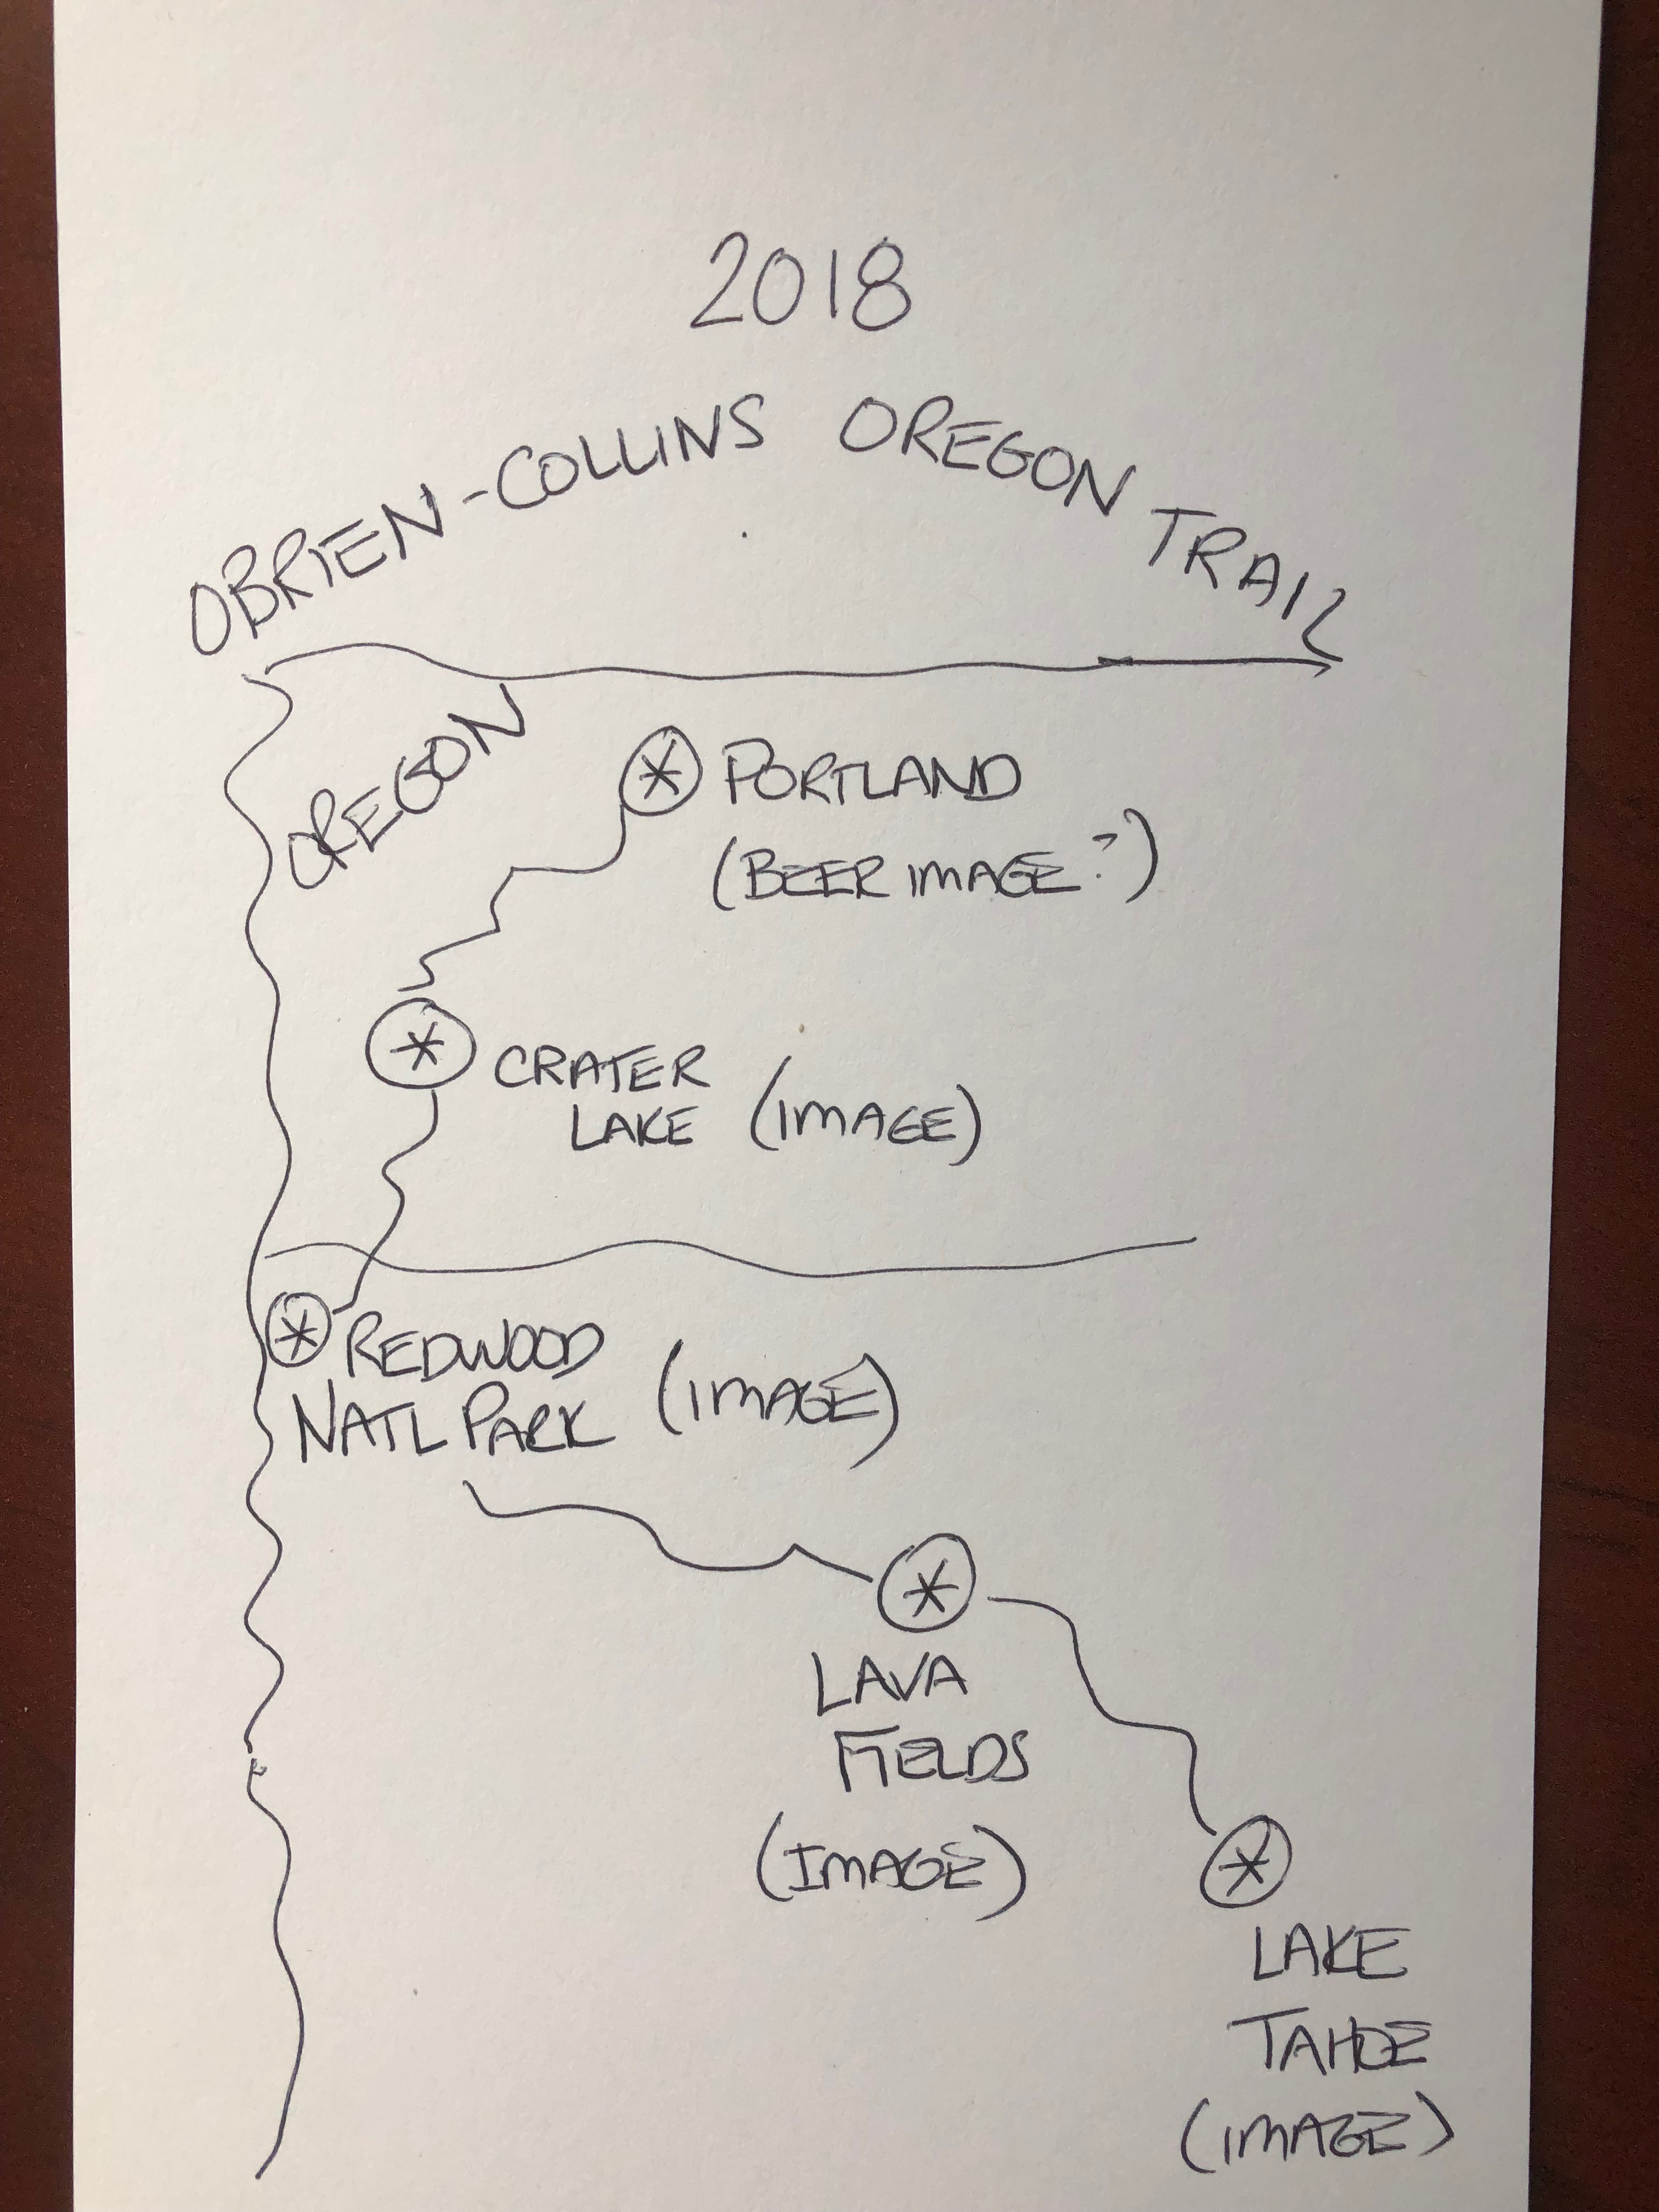 2018
OBRIEN-COLLINS OREGON TRAIL
OREGON
PORTLAND
(BEER IMAGE?)
CRATER
LAKE (IMAGE)
REDWOOD
NATL PARK (IMAGE)
LAVA
FIELDS
(IMAGE)
LAKE
TAHOE
(IMAGE)